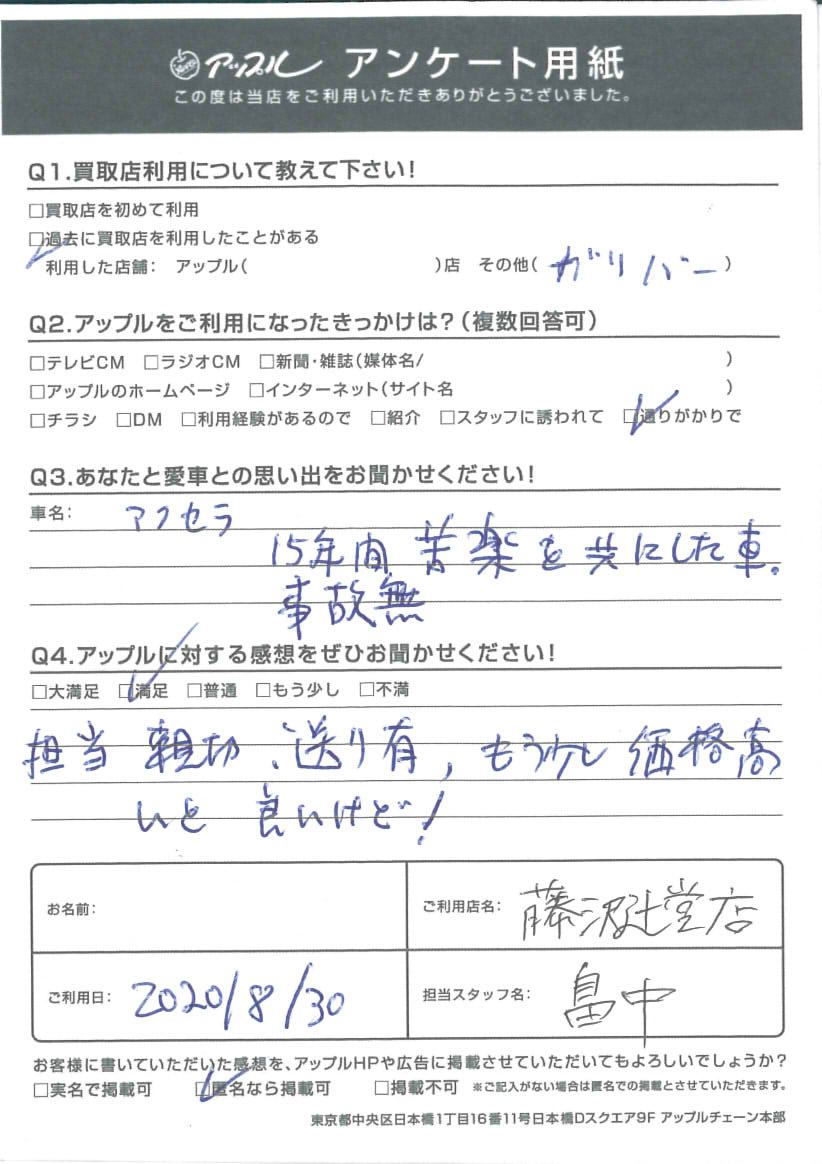 アップル アンケート用紙
この度は当店をご利用いただきありがとうございました。
Q1.買取店利用について教えて下さい!
□買取店を初めて利用
□過去に買取店を利用したことがある
利用した店舗: アップル( )店 その他( ガリバー )
Q2.アップルをご利用になったきっかけは?(複数回答可)
□テレビCM □ラジオCM □新聞・雑誌(媒体名/ )
□アップルのホームページ □インターネット(サイト名 )
□チラシ □DM □利用経験があるので □紹介 □スタッフに誘われて □通りがかりで
Q3.あなたと愛車との思い出をお聞かせください!
車名: アクセラ
15年間 苦楽を共にした車。
事故無
Q4.アップルに対する感想をぜひお聞かせください!
□大満足 □満足 □普通 □もう少し □不満
担当 親切、送り有, もう少し 価格高
いと 良いけど!
お名前:
ご利用店名: 藤沢辻堂店
ご利用日: 2020/8/30
担当スタッフ名: 畠中
お客様に書いていただいた感想を、アップルHPや広告に掲載させていただいてもよろしいでしょうか?
□実名で掲載可 □匿名なら掲載可 □掲載不可 ※ご記入がない場合は匿名での掲載とさせていただきます。
東京都中央区日本橋1丁目16番11号日本橋Dスクエア9F アップルチェーン本部